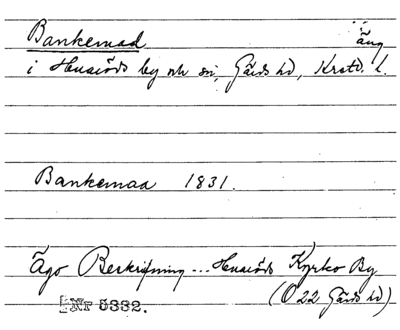 Bankemad äng
i Huaröds by och sn, Gärds hd, Krstd. l.
Bankemad 1831.
Ägo Beskrifning ... Huaröds Kyrko By
(O 22 Gärds hd)
Nr 5332.